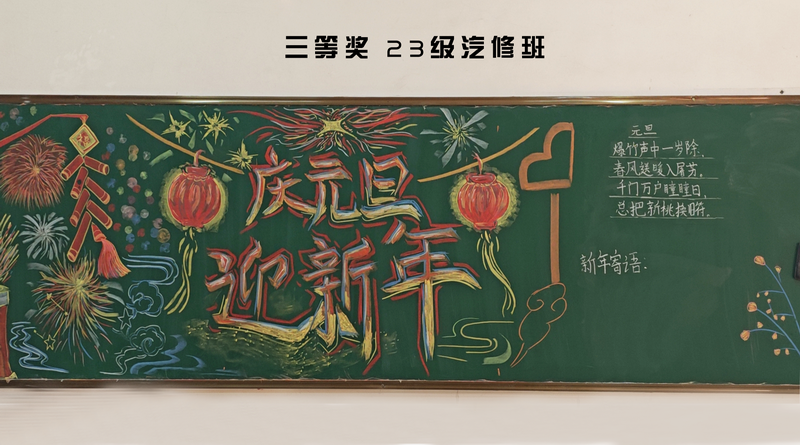 三等奖 23级汽修班
庆元旦
迎新年
元旦
爆竹声中一岁除,
春风送暖入屠苏。
千门万户曈曈日,
总把新桃换旧符。
新年寄语: